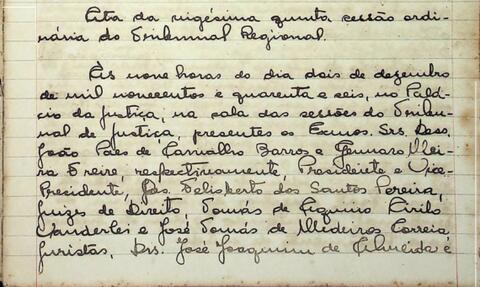 Ata da vigésima quinta sessão ordi-
nária do Tribunal Regional.
Às nove horas do dia dois de dezembro
de mil novecentos e quarenta e seis, no Palá-
cio da Justiça, na sala das sessões do Tribu-
nal de Justiça, presentes os Exmos. Srs. Des.
João Pais de Carvalho Barros e Genaro Mei-
ra Freire, respectivamente, Presidente e Vice-
Presidente, Drs. Felisberto dos Santos Pereira,
Juizes de Direito, Tomás de Aquino Cirilo
Wanderlei e José Tomás de Medeiros Correia
Juristas, Drs. José Joaquim de Almeida e